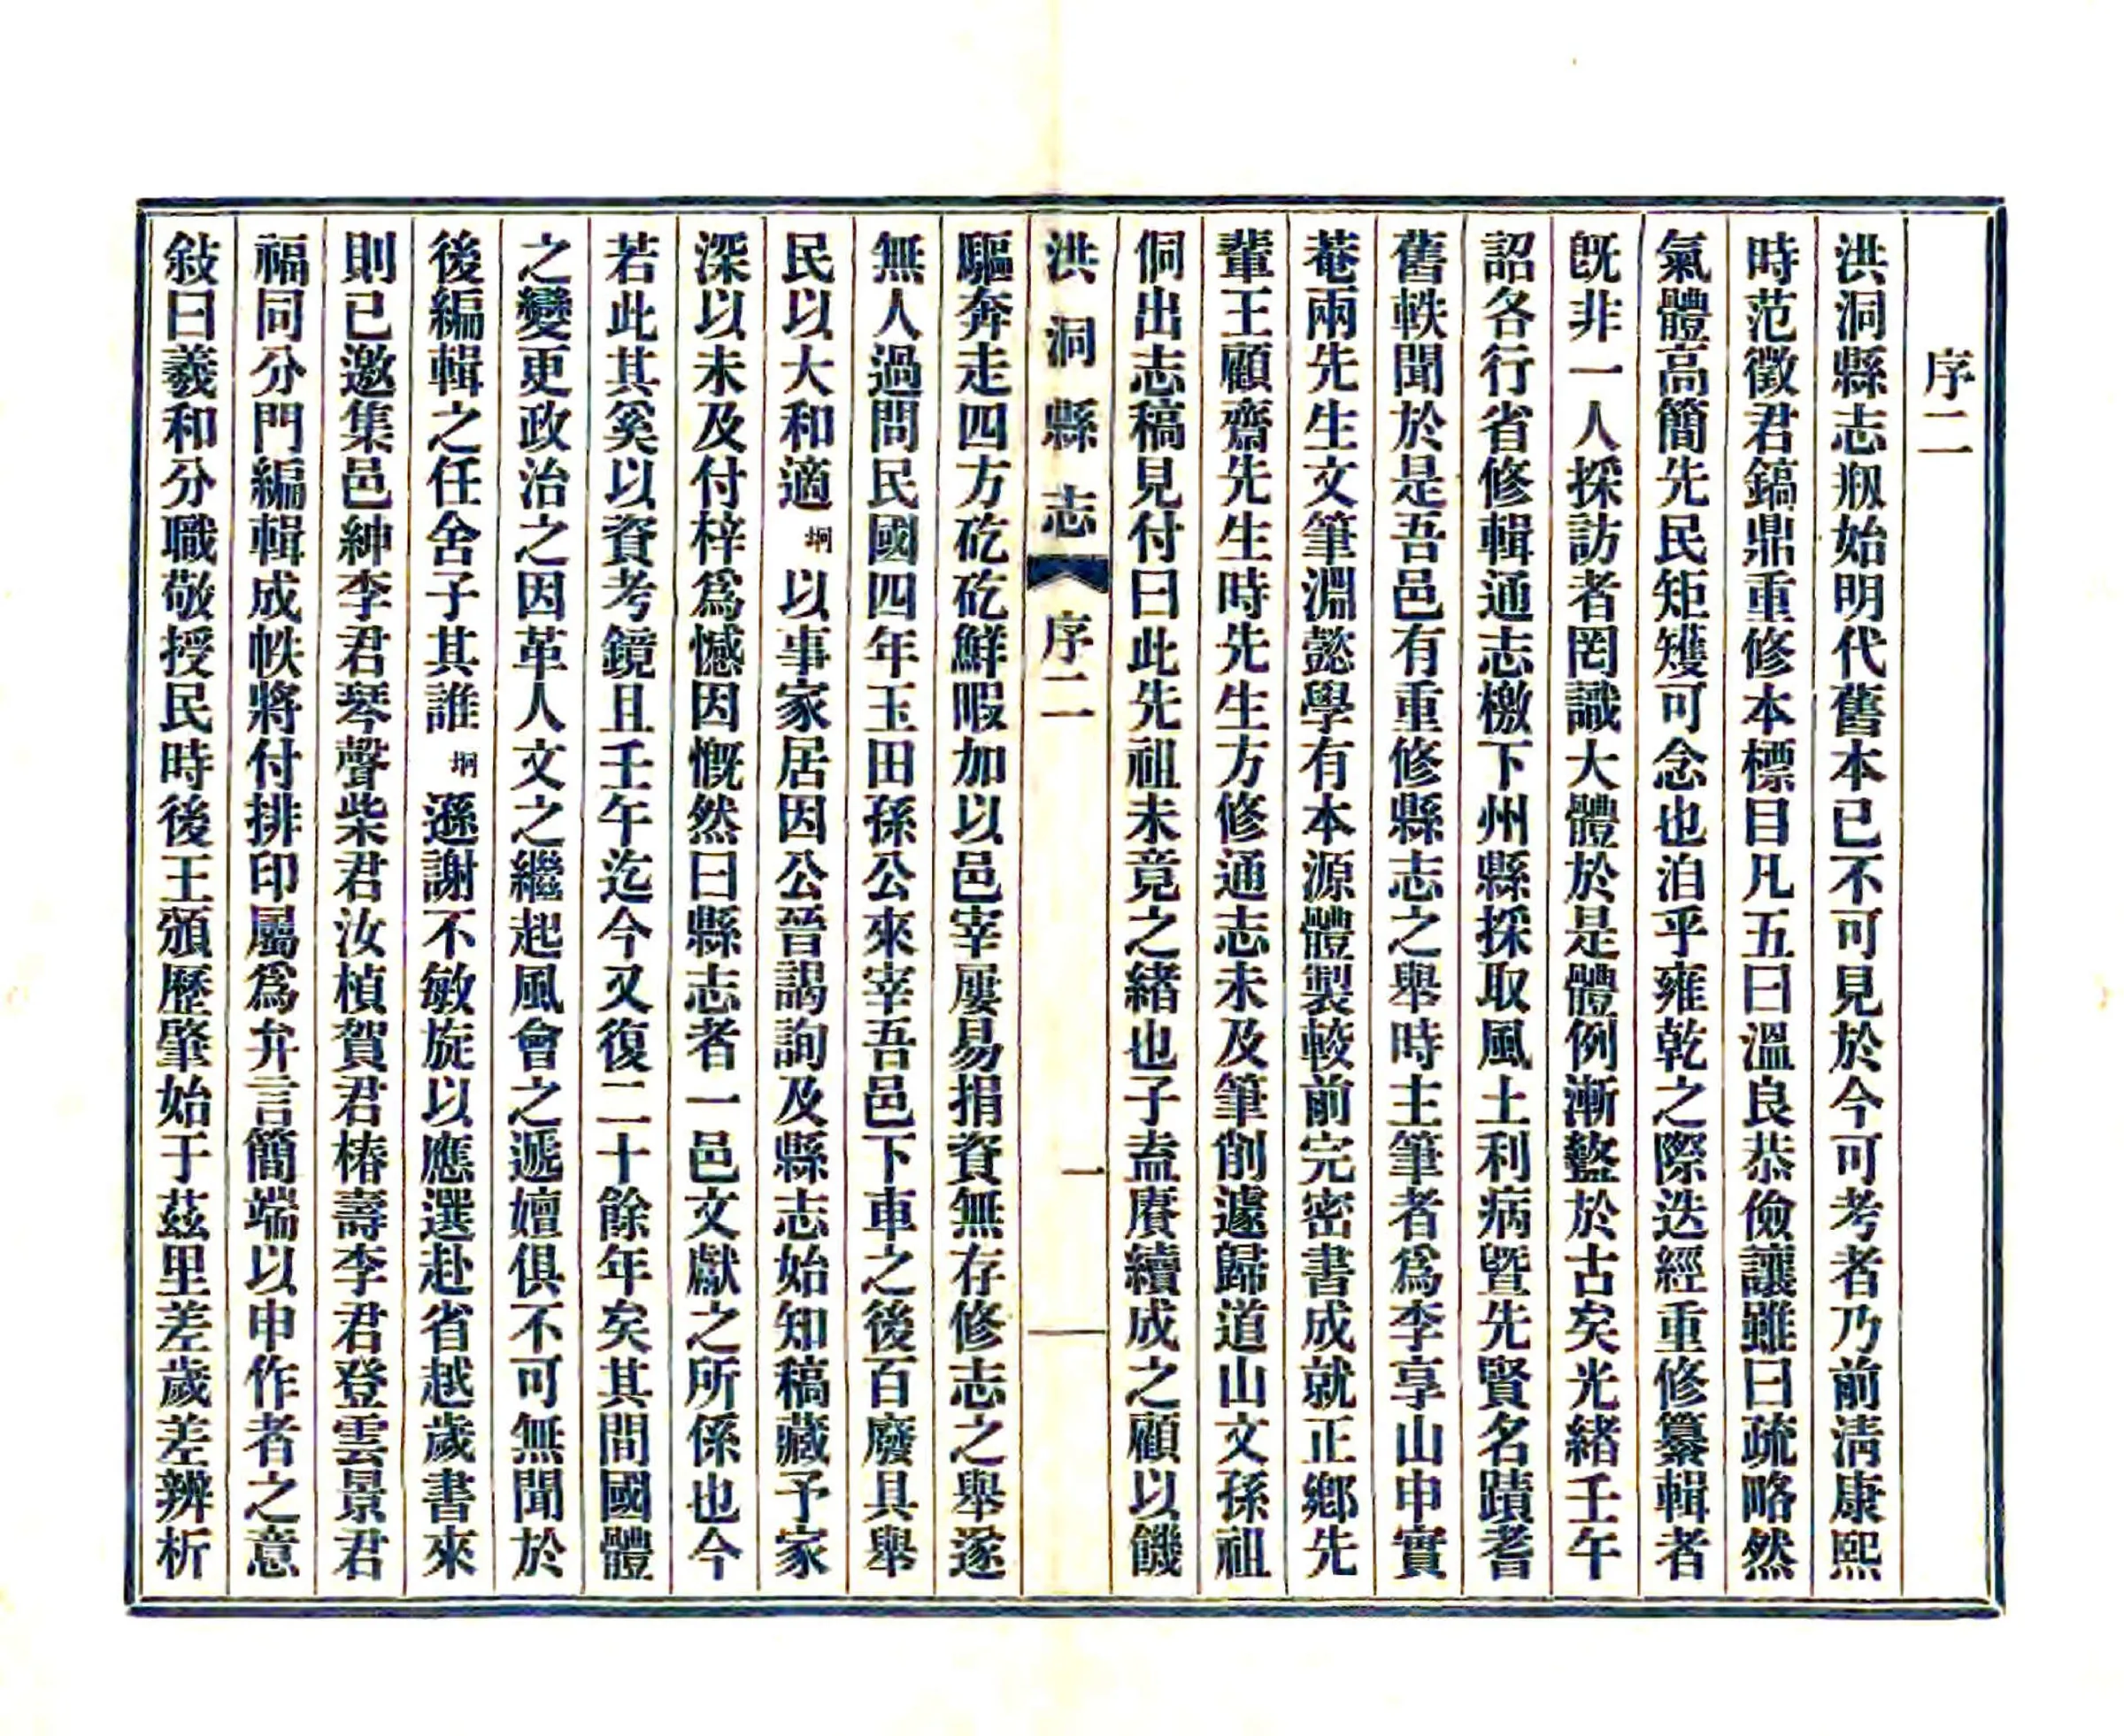 序二
洪洞縣志剏始明代舊本已不可見於今可考者乃前淸康熙
時范徵君鎬鼎重修本標目凡五曰溫良恭儉讓雖曰疏略然
氣體高簡先民矩矱可念也洎乎雍乾之際迭經重修纂輯者
旣非一人採訪者罔識大體於是體例漸盭於古矣光緒壬午
詔各行省修輯通志檄下州縣採取風土利病曁先賢名蹟耆
舊軼聞於是吾邑有重修縣志之舉時主筆者爲李享山申實
菴兩先生文筆淵懿學有本源體製較前完密書成就正鄕先
輩王顧齋先生時先生方修通志未及筆削遽歸道山文孫祖
侗出志稿見付曰此先祖未竟之緒也子盍賡續成之顧以饑
洪洞縣志 序二 一
驅奔走四方矻矻鮮暇加以邑宰屢易捐資無存修志之舉遂
無人過問民國四年玉田孫公來宰吾邑下車之後百廢具舉
民以大和適垌以事家居因公晉謁詢及縣志始知稿藏予家
深以未及付梓爲憾因慨然曰縣志者一邑文獻之所係也今
若此其奚以資考鏡且壬午迄今又復二十餘年矣其間國體
之變更政治之因革人文之繼起風會之遞嬗俱不可無聞於
後編輯之任舍子其誰垌遜謝不敏旋以應選赴省越歲書來
則已邀集邑紳李君琴聲柴君汝楨賀君椿壽李君登雲景君
福同分門編輯成帙將付排印屬爲弁言簡端以申作者之意
敍曰羲和分職敬授民時後王頒歷肇始于茲里差歲差辨析